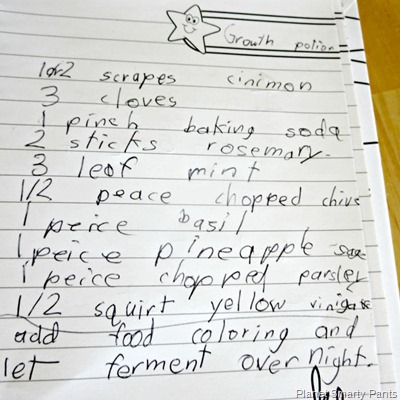 Growth potion
1or2 scrapes cinimon
3 cloves
1 pinch baking soda
2 sticks rosemary.
3 leof mint
1/2 peace chopped chive
1 peirce basil
1 peice pineapple sage
1 peice chopped parsley
1/2 squirt yellow
add food coloring and
let ferment over night.
Planet Smarty Pants